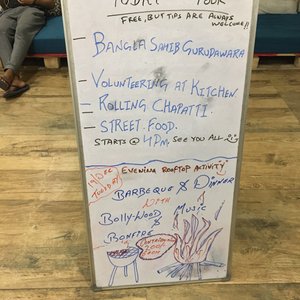 TODAY TOUR
FREE, BUT TIPS ARE ALWAYS
WELCOME!!
- BANGLA SAHIB GURUDAWARA
- VOLUNTEERING AT KITCHEN
- ROLLING CHAPATTI.
- STREET FOOD.
STARTS @ 4PM SEE YOU ALL
EVENING ROOFTOP ACTIVITY
TUESDAY
BARBEQUE & DINNER
WITH
BOLLYWOOD & MUSIC
BONFIRE